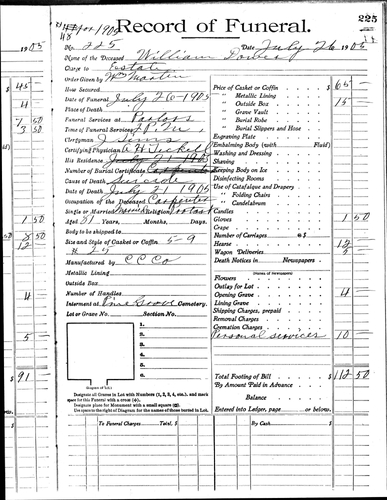 225
Record of Funeral.
1905
No. 225 Date July 26 1905
Name of the Deceased William
Charge to Estate
Order Given by Wm Martin
How Secured
Date of Funeral July 26-1905
Place of Death
Funeral Services at Parlors
Time of Funeral Services
Clergyman
Certifying Physician
His Residence July 21 1905
Number of Burial Certificate
Cause of Death Suicide
Date of Death July 21 1905
Occupation of the Deceased Carpenter
Single or Married Religion
Aged 51 Years, Months, Days.
Body to be shipped to
Size and Style of Casket or Coffin 5-9
# 25
Manufactured by C C Co
Metallic Lining
Outside Box
Number of Handles
Interment at Pine Grove Cemetery.
Lot or Grave No. Section No.
1.
2.
3.
4.
5.
6.
Diagram of Lot
Designate all Graves in Lot with Numbers (1, 2, 3, 4, etc.), and mark
space for this Funeral with a cross (x).
Designate place for Monument with a small square (□).
Use spaces to the right of Diagram for the names of those buried in Lot.
Price of Casket or Coffin $ 65
" Metallic Lining
" Outside Box 15
" Grave Vault
" Burial Robe
" Burial Slippers and Hose
Engraving Plate
Embalming Body (with Fluid)
Washing and Dressing
Shaving
Keeping Body on Ice
Disinfecting Rooms
Use of Catafalque and Drapery
" Folding Chairs
" Candelabrum
Candles
Gloves 1 50
Crape
Number of Carriages @ $
Hearse 12
Wagon Deliveries
Death Notices in Newspapers
(Names of Newspapers)
Flowers
Outlay for Lot
Opening Grave 4
Lining Grave
Shipping Charges, prepaid
Removal Charges
Cremation Charges
Personal services 10
Total Footing of Bill $ 112 50
By Amount Paid in Advance
Balance
Entered into Ledger, page or below.
To Funeral Charges Total, $ By Cash $